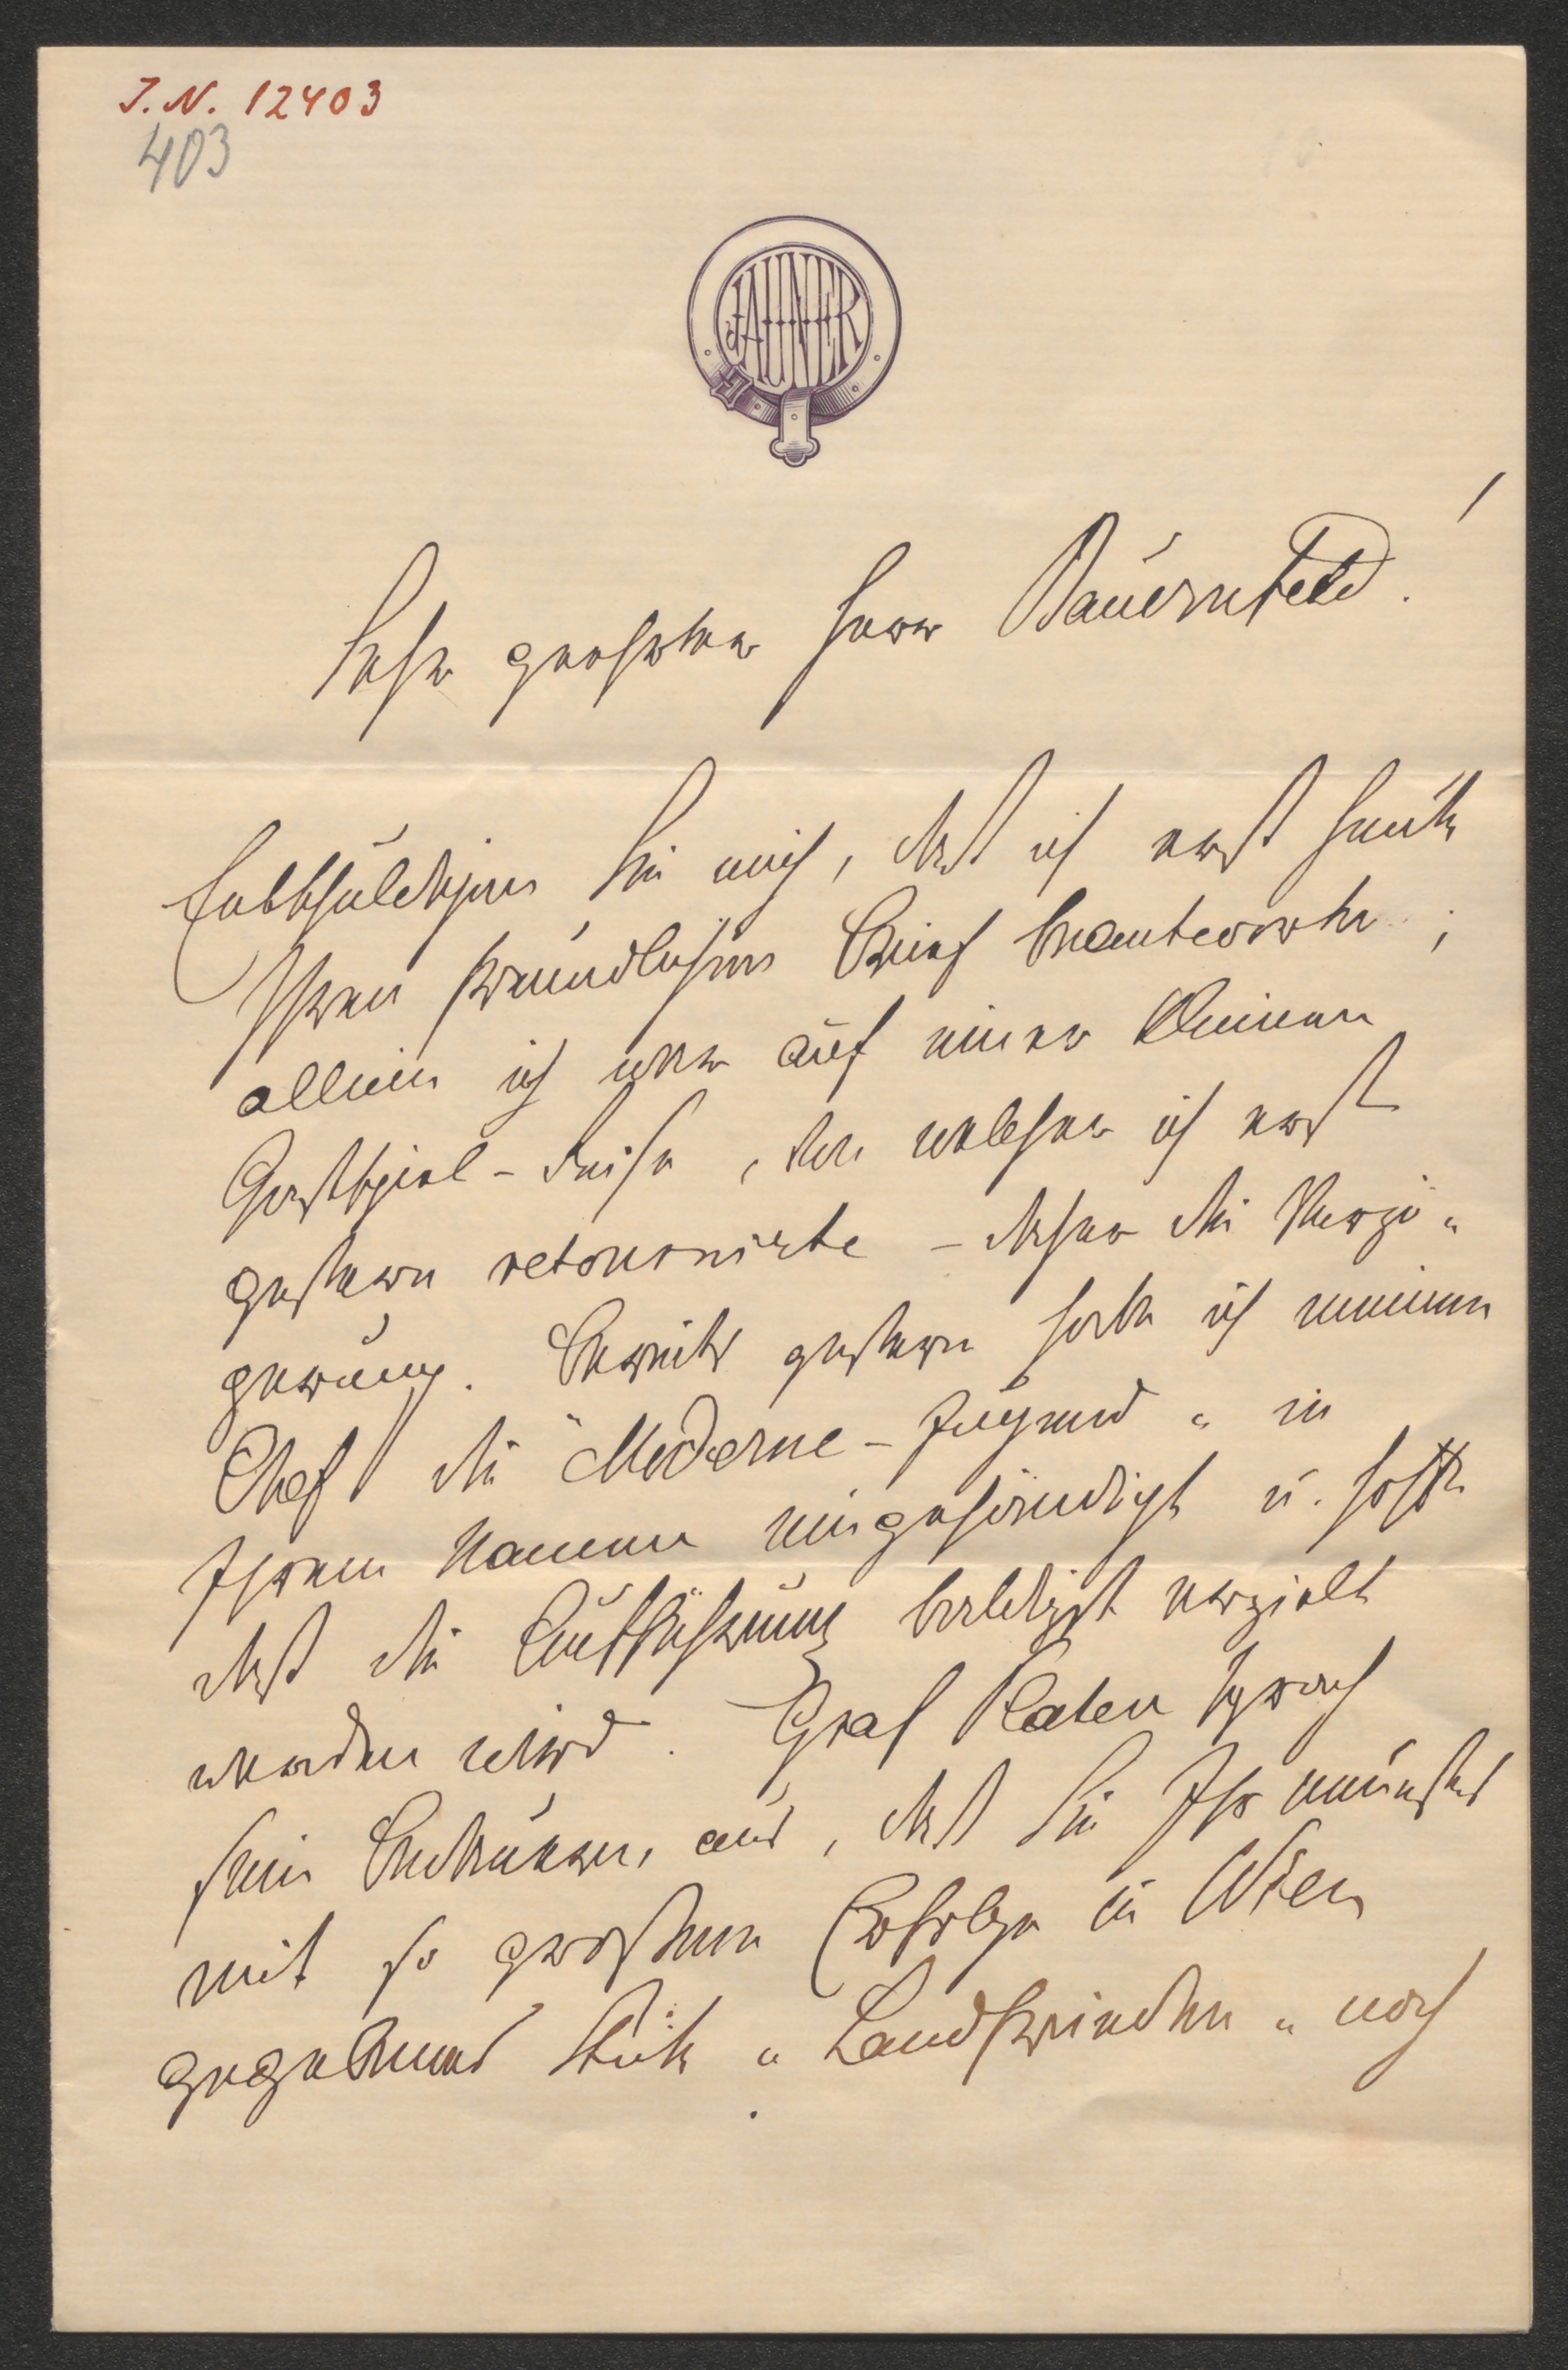 J. N. 12403
403
JAUNER
Sehr geehrter Herr Bauernfeld!
Entschuldigen Sie mich, daß ich erst heute
Ihren freundlichen Brief beantworte;
allein ich war auf einer kleinen
Gastspiel-Reise, von welcher ich erst
gestern retournirte – daher die Verzö-
gerung. Bereits gestern habe ich meinem
Chef die "Moderne-Jugend" in
Ihrem Namen eingehändigt u. hoffe
daß die Aufführung baldigst erzielt
werden wird. Graf Platen sprach
sein Bedauern aus, daß Sie Ihr neuestes
mit so großem Erfolge in Wien
gegebenes Stück "Landfrieden" noch